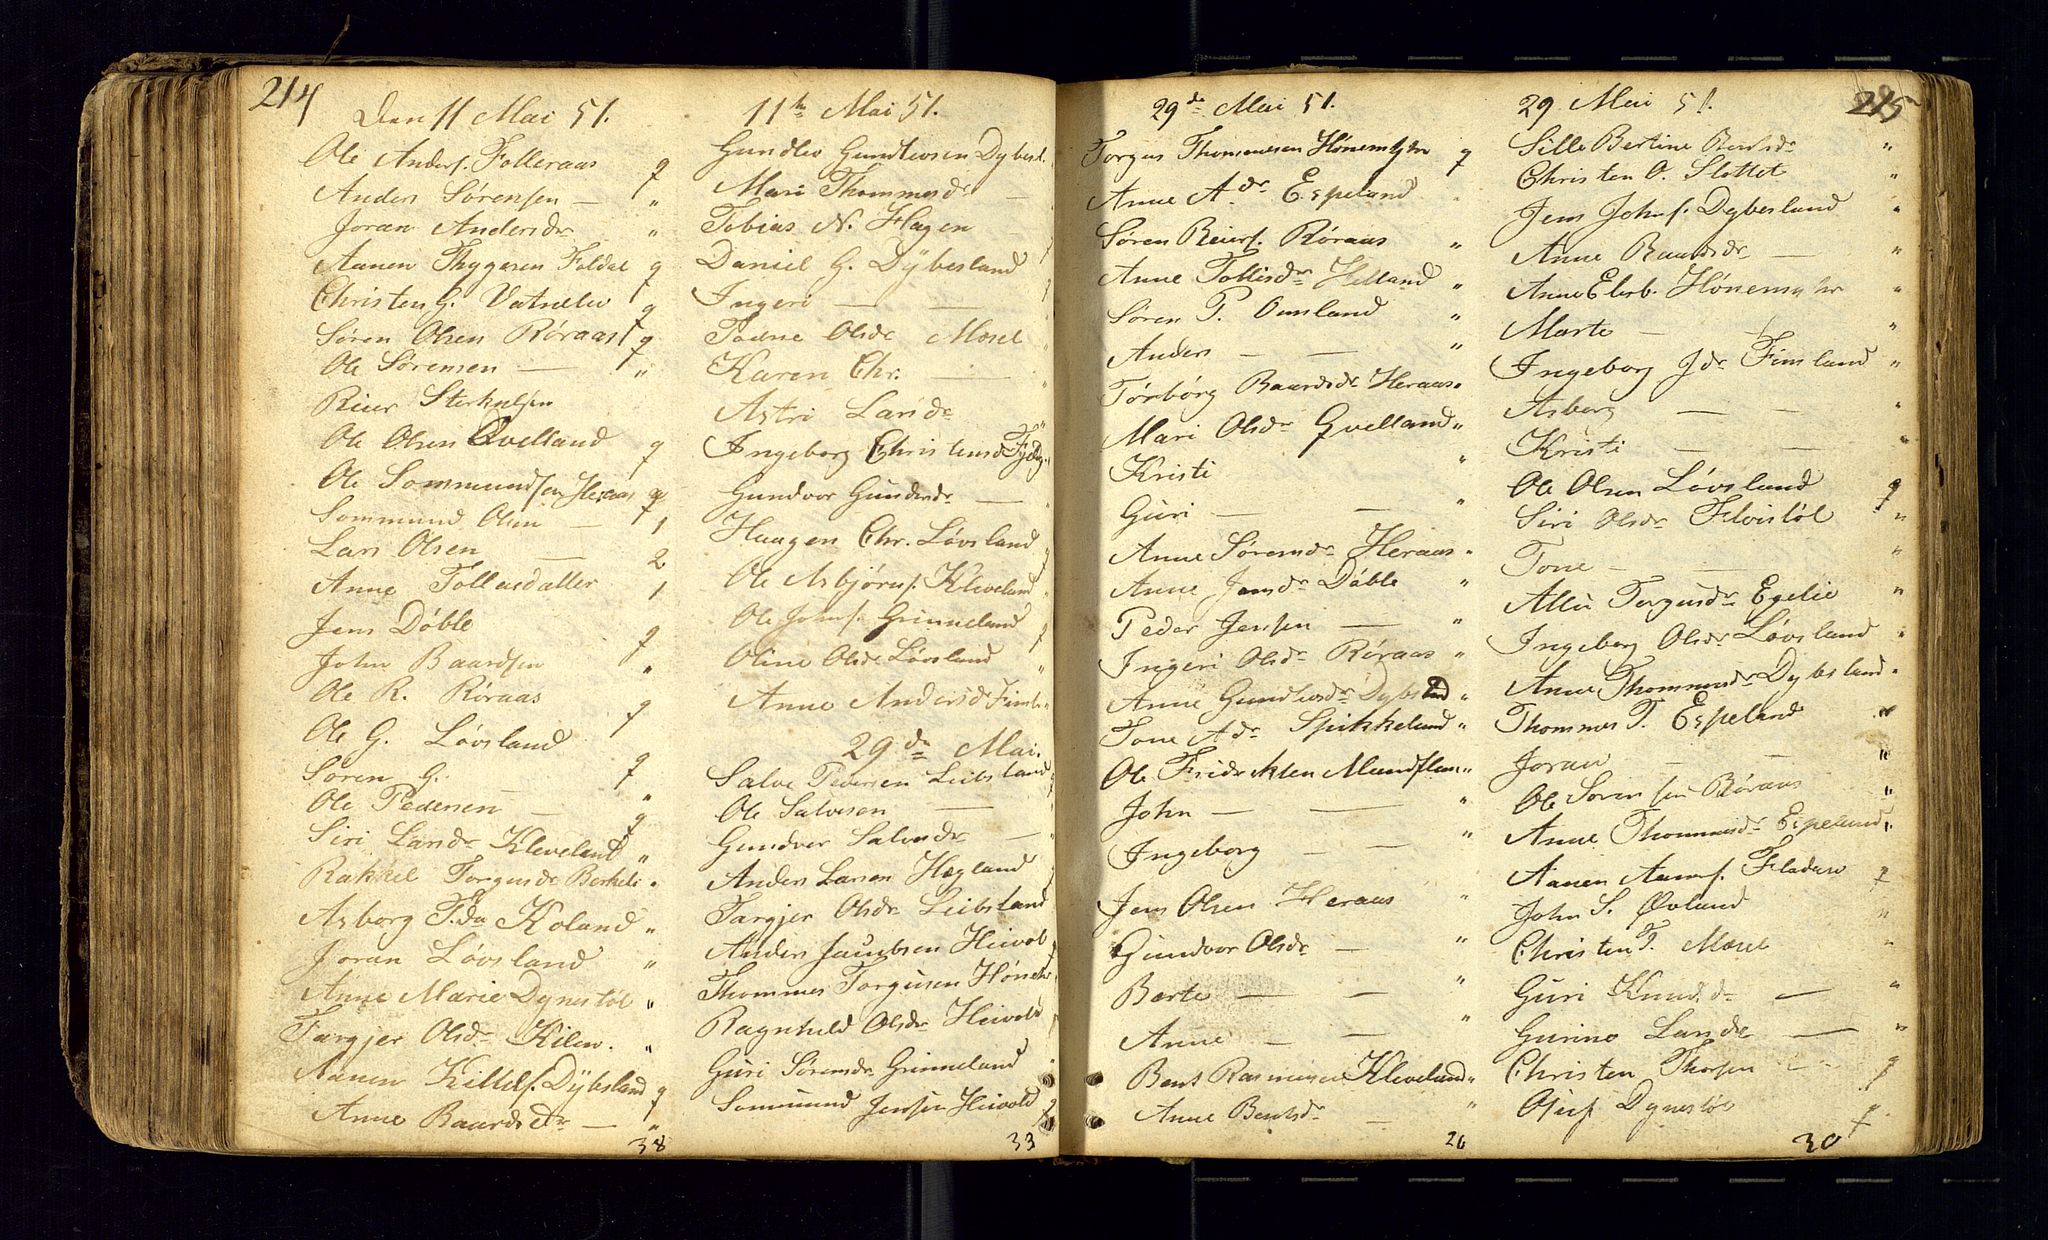 214
Den 11 Mai 51.
Ole Anders. Folleraas q
Anders Sørensen — "
Joran Andersdr "
Aanen Thygesen Foldal q
Christen G. Vatnelev q
Søren Olsen Røraas q
Ole Sørensen — "
Reier Sterkulsen
Ole Olsen Qvelland q
Ole Sommundsen Heraas q
Sommund Olsen — 1
Lars Olsen — 2
Anne Tollasdatter 1
Jens Døble q
John Baardsen "
Ole R. Røraas q
Ole G. Løvsland q
Søren G. "
Ole Pedersen — q
Siri Larsdr Kleveland "
Rakkel Torgusdr Birkeli "
Asborg T.dr Koland "
Joran Løvsland "
Anne Marie Dynestøl "
Targjer Olsdr Kilen. "
Aanen Kittels. Dÿbesland q
Anne Baardsdr — "
38
11te Mai 51.
Gundlev Gundlevsen Dybesl.
Mari Thommesdr —
Tobias N. Hagen
Daniel G. Dÿbesland
Ingeri — —
Tarne Olsdr Mosel
Karen Chr. —
Astri Larsdr
Ingeborg Christensdr
Gundvor Gundersdr —
Haagen Chr. Løvsland
Ole Asbjørns. Kleveland
Ole Johns. Grinneland
Oline Olsdr Løvsland
Anne Andersdr Fiml.
29de Mai.
Salve Pedersen Leibsland
Ole Salvesen —
Gundvor Salvesdr —
Anders Larsen Hægland
Targjer Olsdr Leibsland
Anders Jacobsen Heivol
Thommes Torgusen Hønem
Ragnhild Olsdr Heivold
Guri Sørensdr Grinneland
Sommund Jensen Heivold q
33
29de Mai 51.
Torgus Thommesen Hønemyhr q
Anne A.dr Espeland
Søren Reiers. Røraas "
Anne Tollisdr Helland "
Søren P. Omland "
Anders — — "
Torborg Baardsdr Heraas "
Mari Olsdr Qvelland "
Kristi "
Guri — — "
Anne Sørensdr Heraas "
Anne Jensdr Døble "
Peder Jensen — "
Ingeri Olsdr Røraas "
Anne Gundlevsdr Dybesland "
Tone A dr Spikkeland "
Ole Fridriksen "
John — — "
Ingeborg — — "
Jens Olsen Heraas "
Gundvor Olsdr — "
Berte — — "
Anne — — "
Bent Rasmusen Kleveland "
Anne Bentsdr — "
26
29 Mai 51. 215
Sille Bertine Bentsdr "
Christen O. Slottet "
Jens Johns. Dybesland "
Anne Baardsdr — "
Anne Elisb. Hønemyhr "
Marte — — "
Ingeborg Jdr Fimland "
Asborg — — "
Kristi — — "
Ole Olsen Løvsland q
Siri Olsdr Flvistøl "
Tone — — "
Allis Torgusdr Egelie "
Ingeborg Olsdr Løvsland "
Anne Thommesdr Dybesland "
Thommes T. Espeland "
Joran — — "
Ole Sørensen Røraas "
Anne Thommesdr Espeland "
Aanen Aans. Fladaw q
John S. Øvland "
Christen T. Mosel "
Guri Knudsdr — "
Gurine Larsdr — "
Christen Thorsen — q
Dynestøl q
30